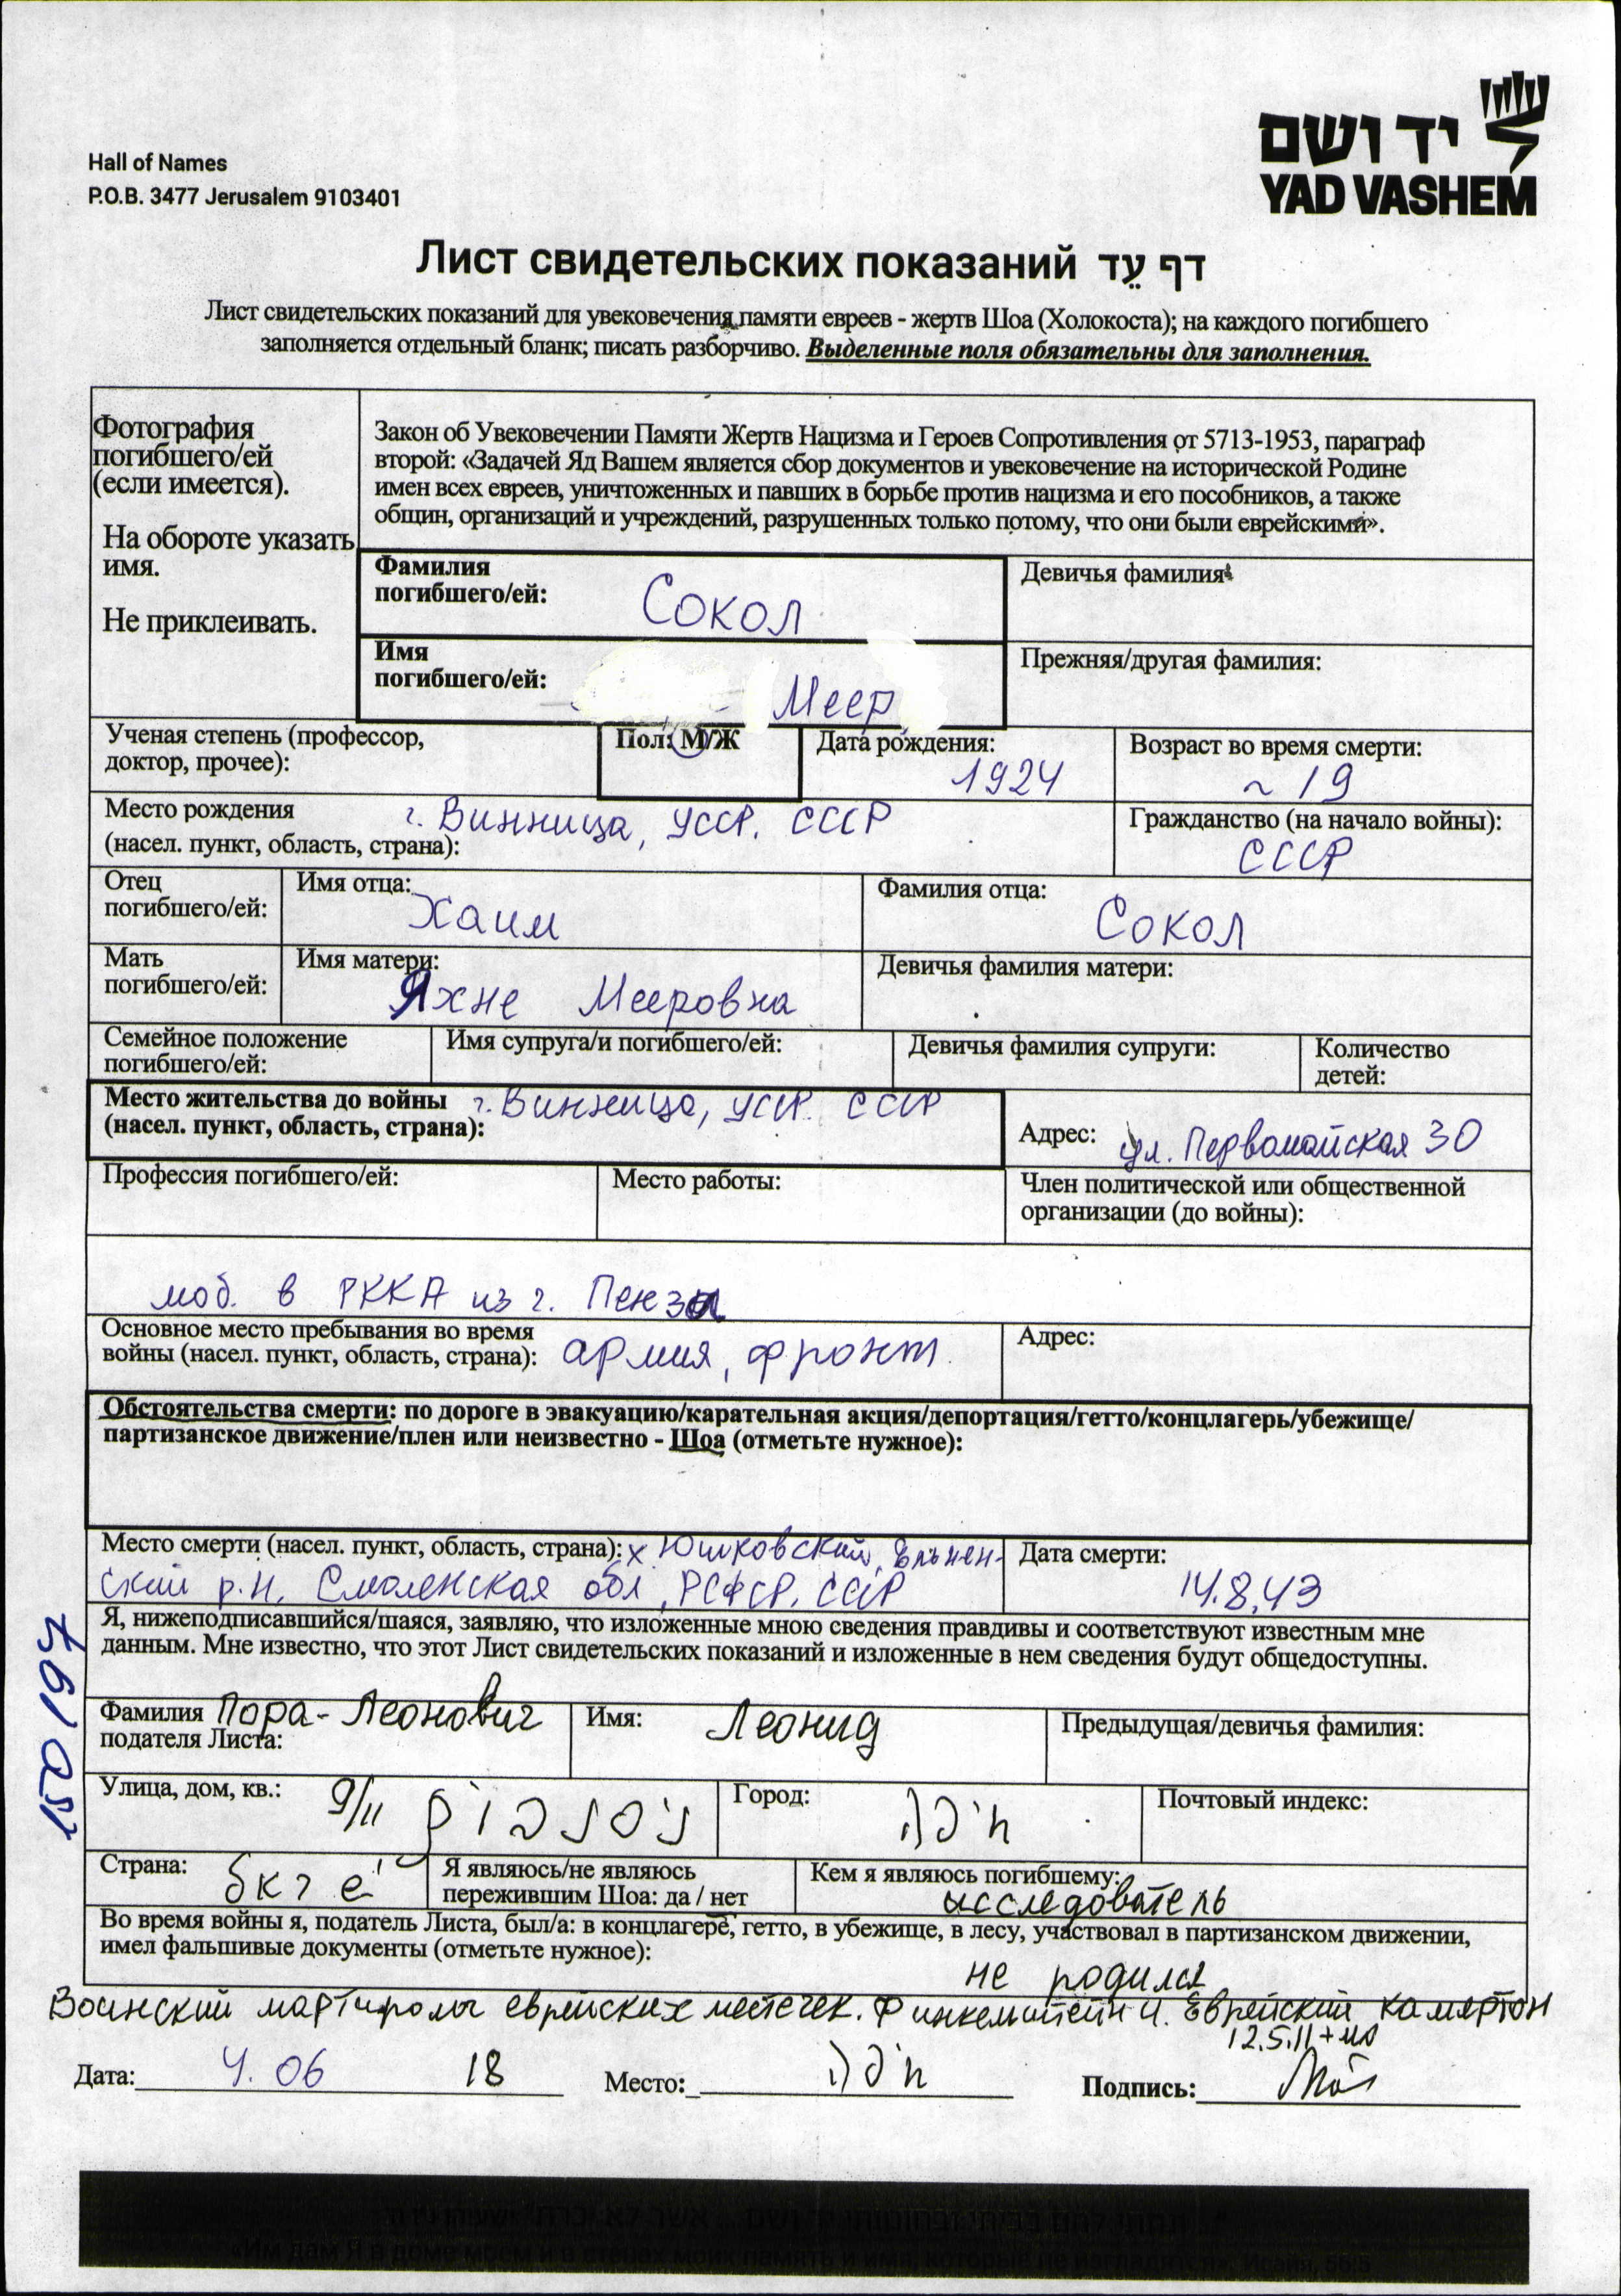 יד ושם
YAD VASHEM
Hall of Names
P.O.B. 3477 Jerusalem 9103401
Лист свидетельских показаний דף עֵד
Лист свидетельских показаний для увековечения памяти евреев - жертв Шоа (Холокоста); на каждого погибшего
заполняется отдельный бланк; писать разборчиво. Выделенные поля обязательны для заполнения.
Фотография
погибшего/ей
(если имеется).
На обороте указать
имя.
Не приклеивать.
Закон об Увековечении Памяти Жертв Нацизма и Героев Сопротивления от 5713-1953, параграф
второй: «Задачей Яд Вашем является сбор документов и увековечение на исторической Родине
имен всех евреев, уничтоженных и павших в борьбе против нацизма и его пособников, а также
общин, организаций и учреждений, разрушенных только потому, что они были еврейскими».
Фамилия
погибшего/ей: Сокол
Девичья фамилия:
Имя
погибшего/ей: Меер
Прежняя/другая фамилия:
Ученая степень (профессор,
доктор, прочее):
Пол: М/Ж
Дата рождения:
1924
Возраст во время смерти:
~ 19
Место рождения г. Винница, УССР. СССР
(насел. пункт, область, страна):
Гражданство (на начало войны):
СССР
Отец
погибшего/ей:
Имя отца:
Хаим
Фамилия отца:
Сокол
Мать
погибшего/ей:
Имя матери:
Яхне Мееровна
Девичья фамилия матери:
Семейное положение
погибшего/ей:
Имя супруга/и погибшего/ей:
Девичья фамилия супруги:
Количество
детей:
Место жительства до войны г. Винница, УССР. СССР
(насел. пункт, область, страна):
Адрес: ул. Первомайская 30
Профессия погибшего/ей:
Место работы:
Член политической или общественной
организации (до войны):
моб. в РККА из г. Пензы
Основное место пребывания во время
войны (насел. пункт, область, страна): армия, фронт.
Адрес:
Обстоятельства смерти: по дороге в эвакуацию/карательная акция/депортация/гетто/концлагерь/убежище/
партизанское движение/плен или неизвестно - Шоа (отметьте нужное):
Место смерти (насел. пункт, область, страна): х Юшковский, Ельнен-
ский р.н, Смоленская обл, РСФСР. СССР
Дата смерти:
14.8.43
Я, нижеподписавшийся/шаяся, заявляю, что изложенные мною сведения правдивы и соответствуют известным мне
данным. Мне известно, что этот Лист свидетельских показаний и изложенные в нем сведения будут общедоступны.
150197
Фамилия Пора-Леонович
податели Листа:
Имя: Леонид
Предыдущая/девичья фамилия:
Улица, дом, кв.: 9/11
Город:
Почтовый индекс:
Страна:
Я являюсь/не являюсь
пережившим Шоа: да / нет
Кем я являюсь погибшему:
исследователь
Во время войны я, податель Листа, был/а: в концлагере, гетто, в убежище, в лесу, участвовал в партизанском движении,
имел фальшивые документы (отметьте нужное):
не родился
Воинский мартиролог еврейских местечек. Финкельштейн И. Еврейский камертон
12.5.11
Дата: 4. 06 18
Место:
Подпись: